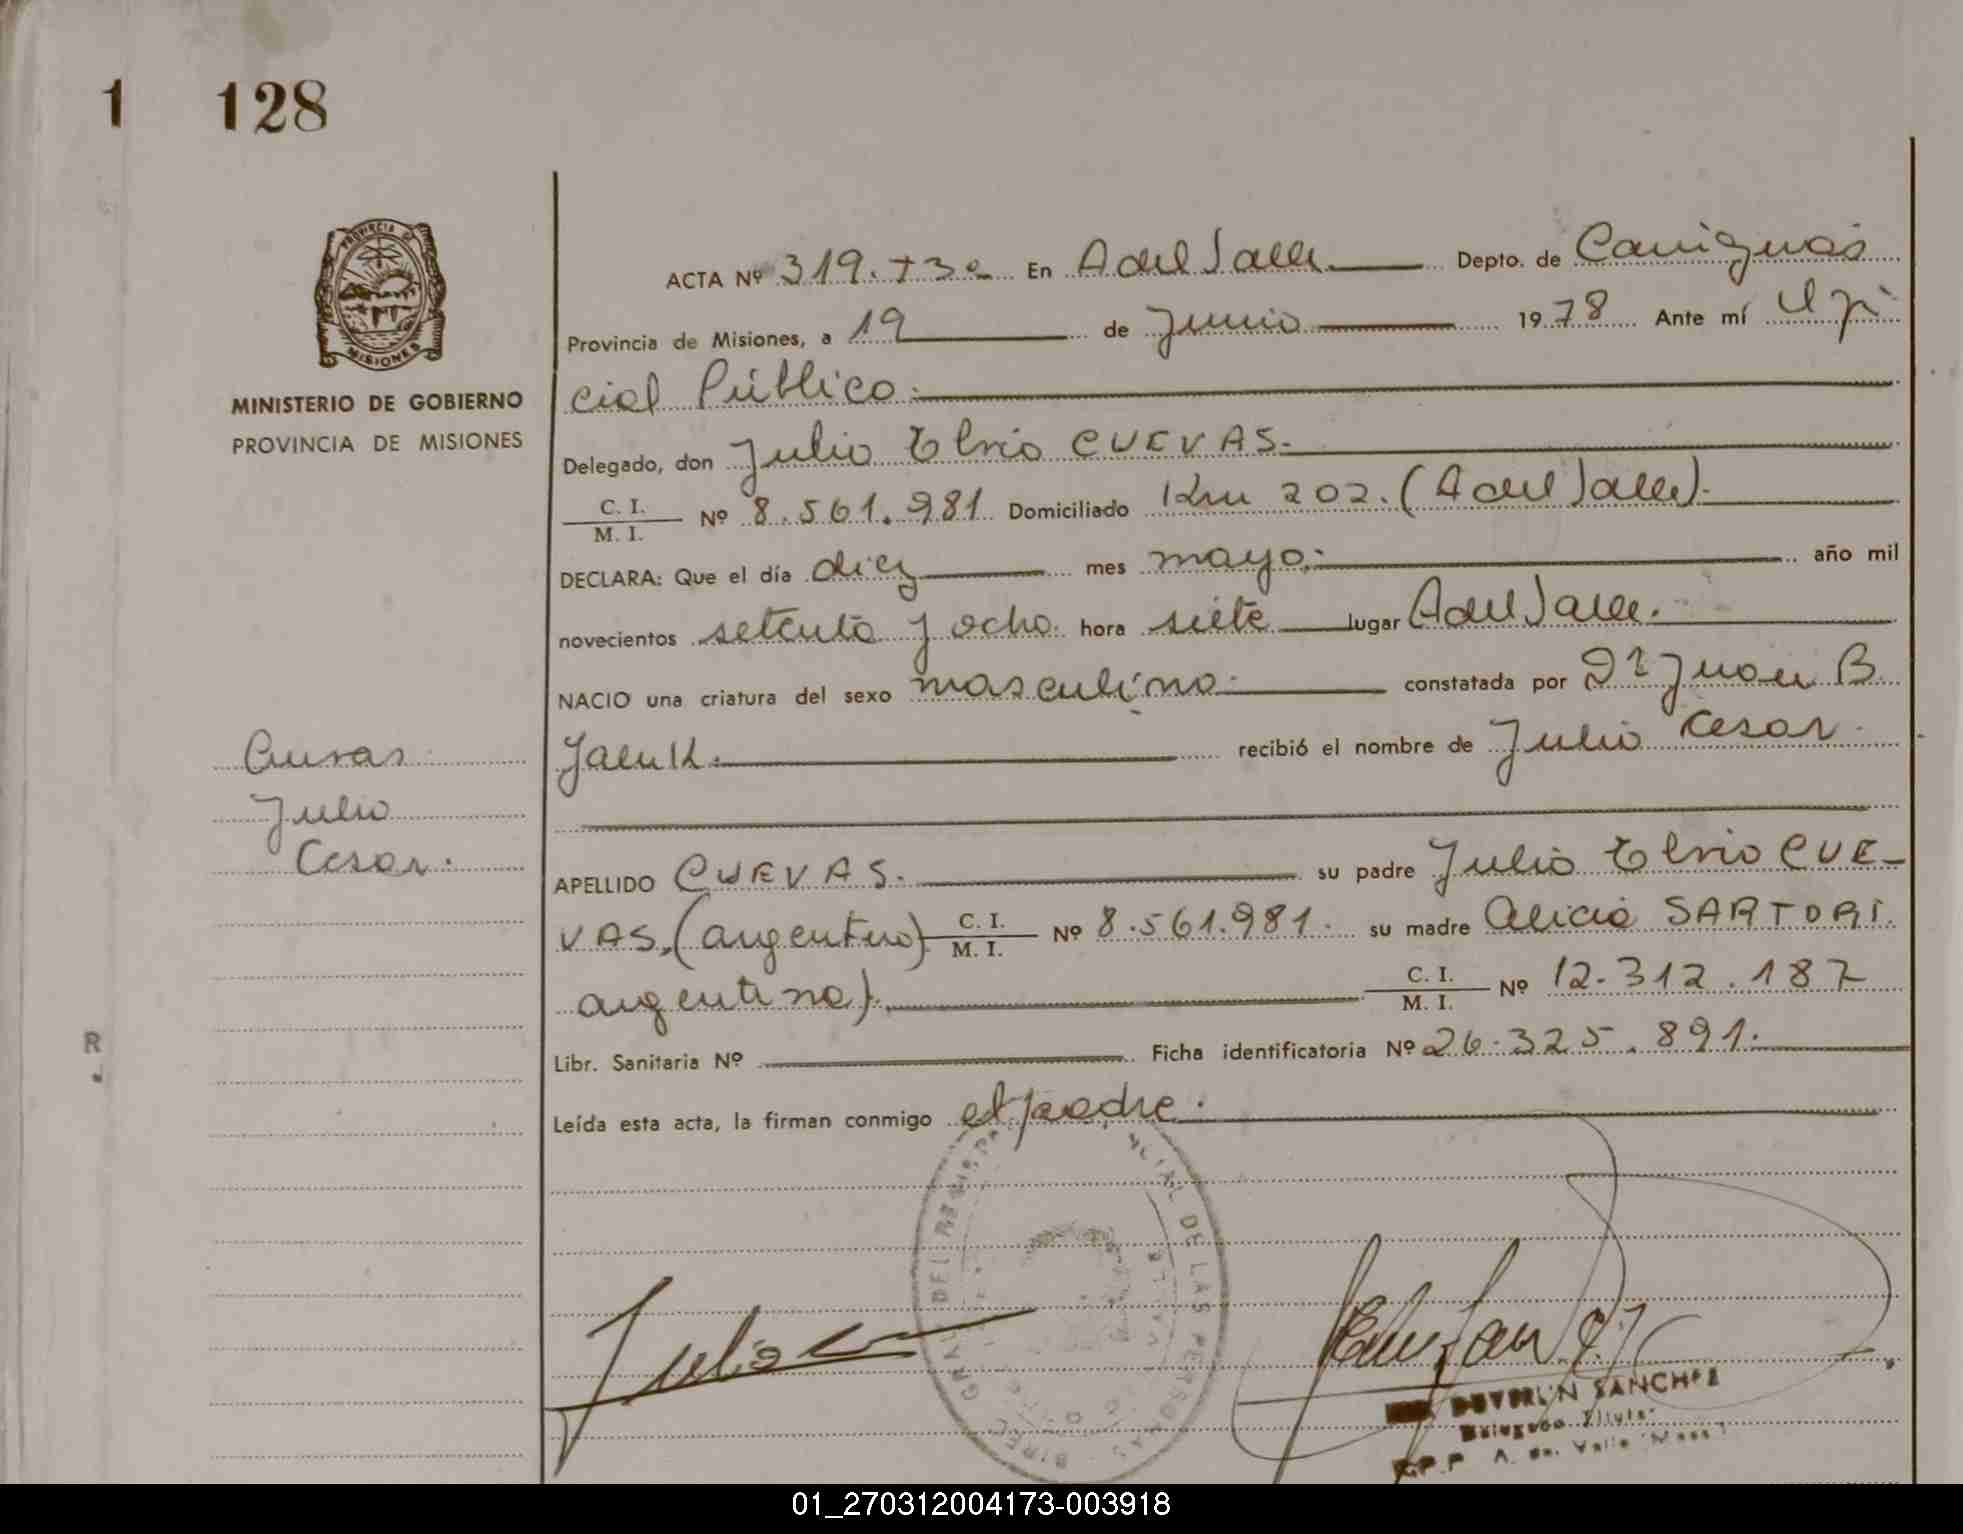 1 128
PROVINCIA DE
MISIONES
MINISTERIO DE GOBIERNO
PROVINCIA DE MISIONES
ACTA Nº 319. T3º En A del Valle Depto. de Cainguás
Provincia de Misiones, a 19 de Junio 1978 Ante mí Ofi
cial Público.
Delegado, don Julio Elvio CUEVAS.
C. I.
M. I. Nº 8.561.981 Domiciliado Km 202. (A del Valle).
DECLARA: Que el día diez mes mayo. año mil
novecientos setenta y ocho. hora siete lugar A del Valle.
NACIO una criatura del sexo masculino. constatada por Dr Juan B.
recibió el nombre de Julio Cesar.
Cuevas
Julio
Cesar.
APELLIDO CUEVAS. su padre Julio Elvio CUE-
VAS. (argentino) C. I.
M. I. Nº 8.561.981. su madre Alicia SARTORI.
argentina). C. I.
M. I. Nº 12.312.187
R
Libr. Sanitaria Nº Ficha identificatoria Nº 26.325.891.
Leída esta acta, la firman conmigo el padre.
DE LAS PERSONAS
Julio
SANCHEZ
A. del Valle
01_270312004173-003918